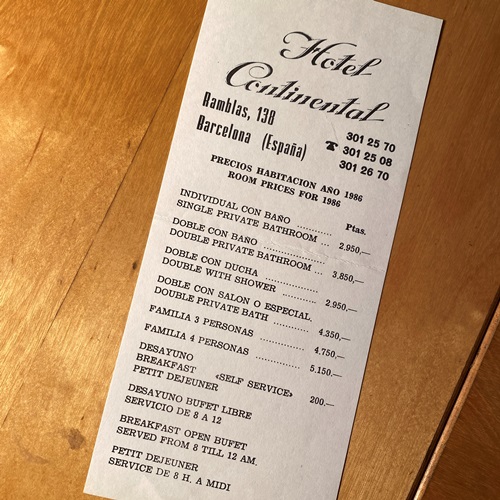 Hotel
Continental
Ramblas, 138
Barcelona (España)
301 25 70
☎ 301 25 08
301 26 70
PRECIOS HABITACION AÑO 1986
ROOM PRICES FOR 1986
Ptas.
INDIVIDUAL CON BAÑO
SINGLE PRIVATE BATHROOM ... 2.950,—
DOBLE CON BAÑO
DOUBLE PRIVATE BATHROOM ... 3.850,—
DOBLE CON DUCHA
DOUBLE WITH SHOWER ... 2.950,—
DOBLE CON SALON O ESPECIAL
DOUBLE PRIVATE BATH ... 4.350,—
FAMILIA 3 PERSONAS ... 4.750,—
FAMILIA 4 PERSONAS ... 5.150,—
DESAYUNO
BREAKFAST «SELF SERVICE» 200,—
PETIT DEJEUNER
DESAYUNO BUFET LIBRE
SERVICIO DE 8 A 12
BREAKFAST OPEN BUFET
SERVED FROM 8 TILL 12 AM.
PETIT DEJEUNER
SERVICE DE 8 H. A MIDI